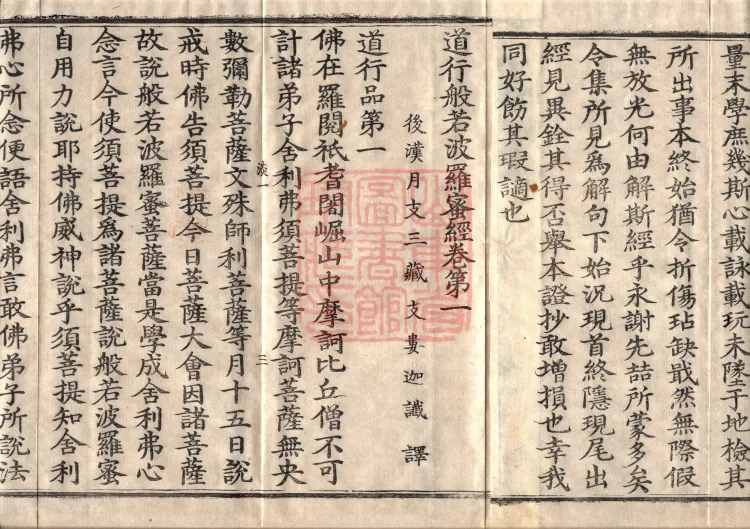 量末學庶幾斯心載詠載玩未墜于地檢其
所出事本終始猶令折傷玷缺戢然無際假
無放光何由解斯經乎永謝先喆所蒙多矣
令集所見爲解句下始況現首終隱現尾出
經見異銓其得否舉本證抄敢增損也幸我
同好飭其瑕謫也
道行般若波羅蜜經卷第一
後漢月支三藏支婁迦讖譯
道行品第一
佛在羅閱祇耆闍崛山中摩訶比丘僧不可
計諸弟子舍利弗須菩提等摩訶菩薩無央
三
數彌勒菩薩文殊師利菩薩等月十五日說
戒時佛告須菩提今日菩薩大會因諸菩薩
故說般若波羅蜜菩薩當是學成舍利弗心
念言今使須菩提爲諸菩薩說般若波羅蜜
自用力說耶持佛威神說乎須菩提知舍利
弗心所念便語舍利弗言敢佛弟子所說法